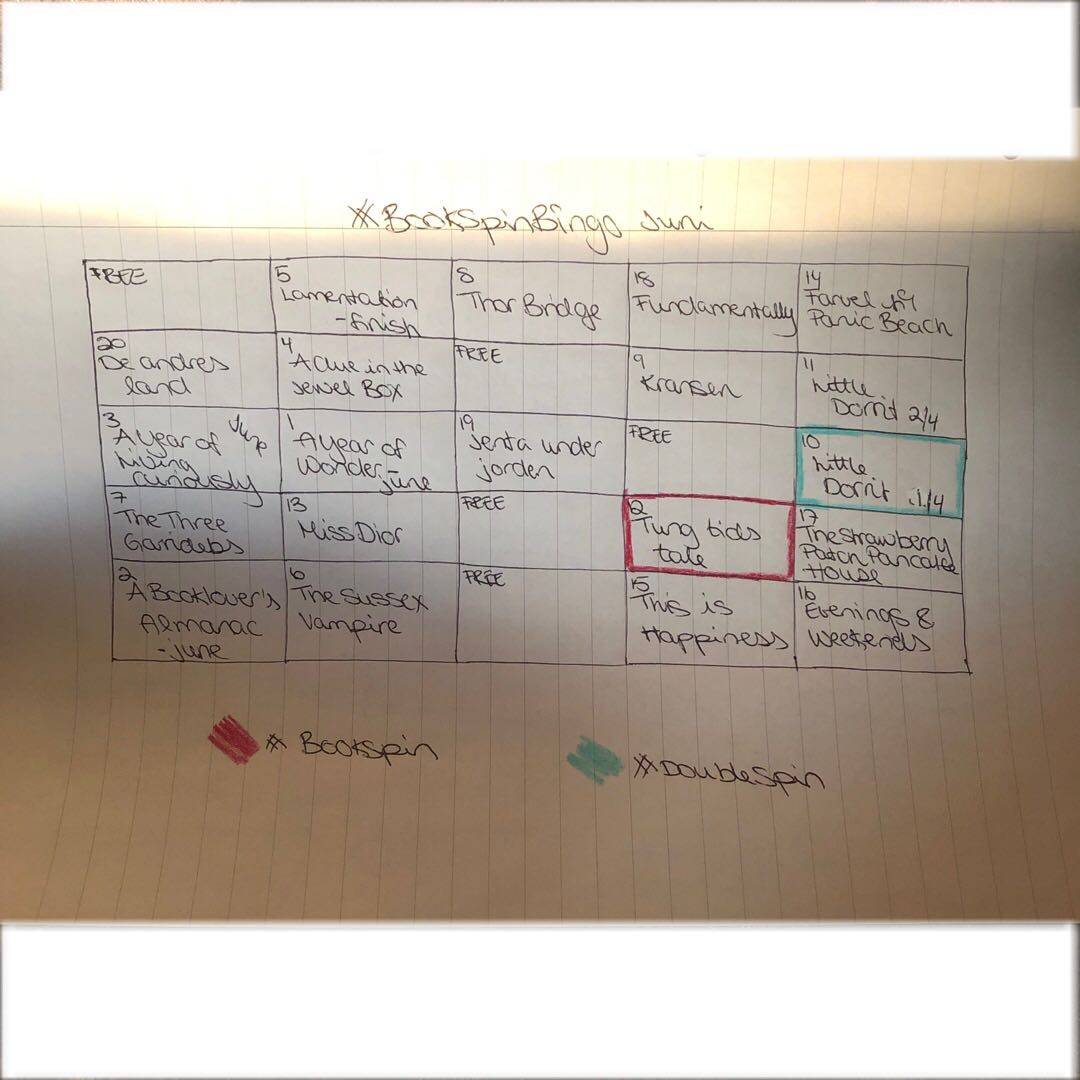 #BookSpinBingo Juni
FREE
5
Lamentation
-finish
8
Thor Bridge
18
Fundamentally
14
Farvel til
Panic Beach
20
De andres
land
4
A Clue in the
Jewel Box
FREE
9
Kransen
11
Little
Dorrit 2/4
3
A year of
Living
Curiously
1
A year of
Wonder-
june
19
Jenta under
jorden
FREE
10
Little
Dorrit 1/4
7
The Three
Garridebs
13
Miss Dior
FREE
12
Tung tids
tale
17
The Strawberry
Patch Pancake
House
2
A Booklover's
Almanac
-june
6
The Sussex
Vampire
FREE
15
This is
Happiness
16
Evenings &
Weekends
# BookSpin
#DoubleSpin